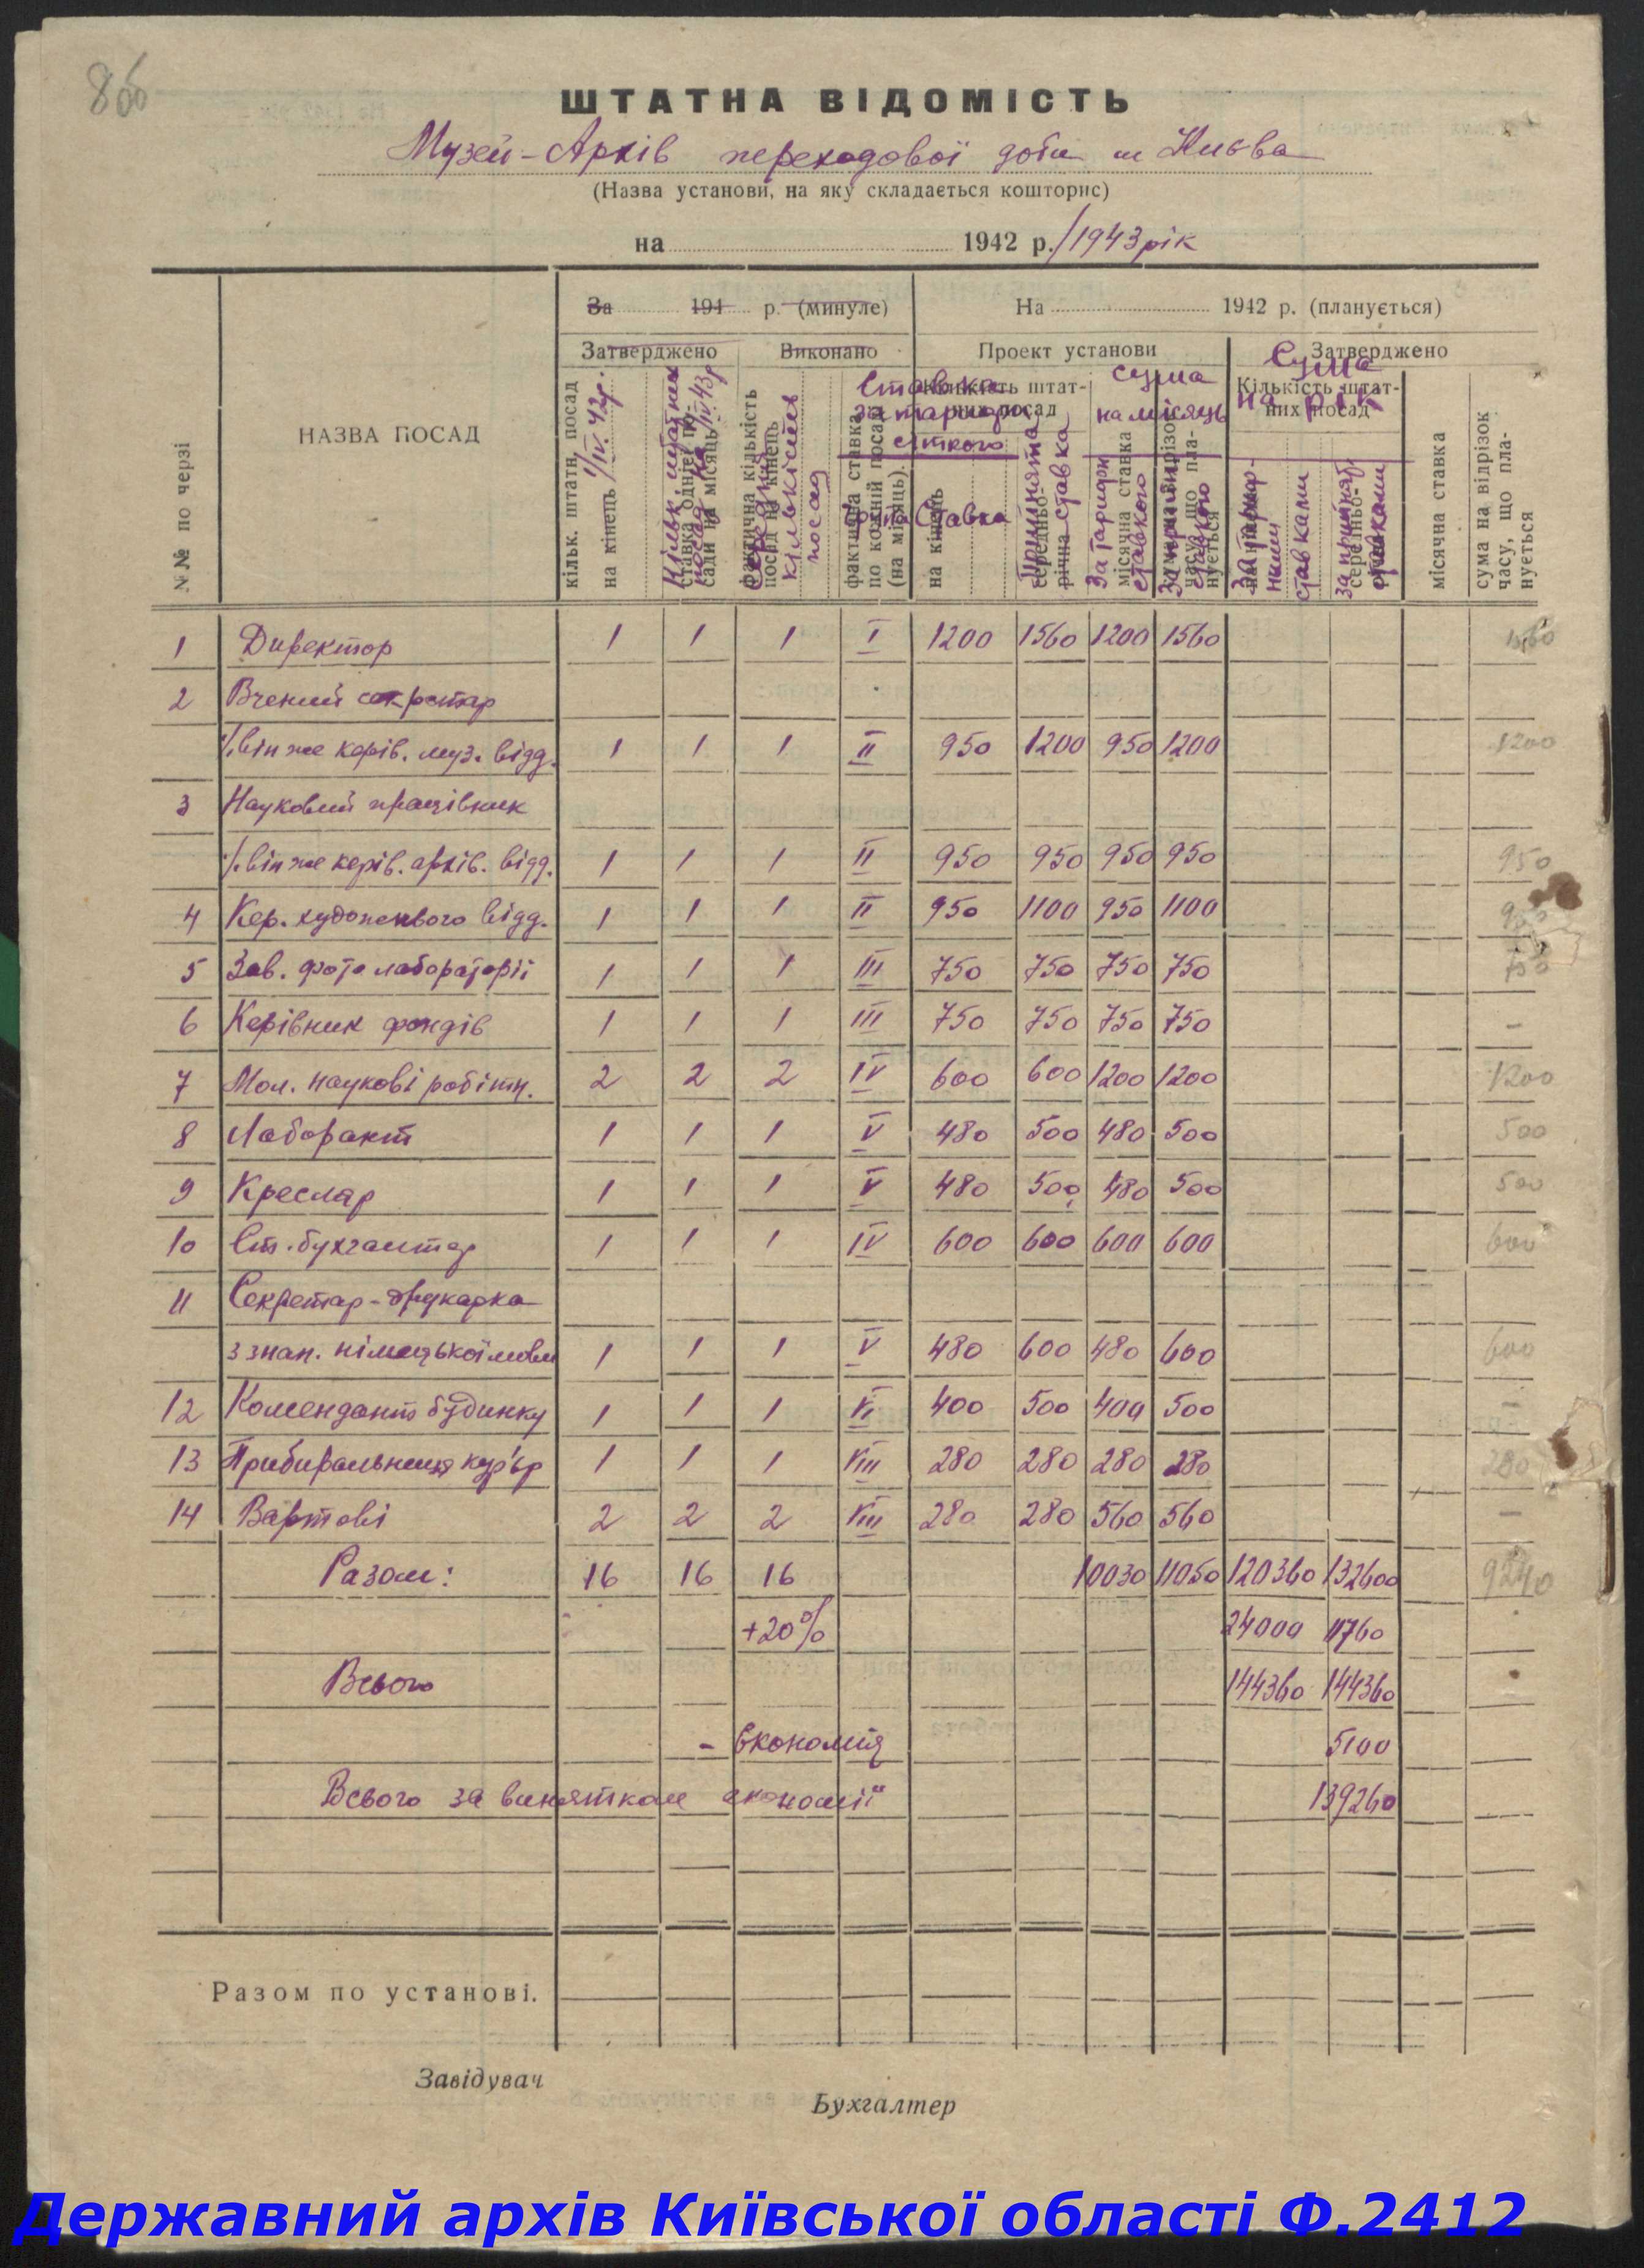 86
ШТАТНА ВІДОМІСТЬ
Музей-Архів переходової доби м Києва
(Назва установи, на яку складається кошторис)
на 1942 р./1943 рік
№№ по черзі
НАЗВА ПОСАД
За 194 р. (минуле)
На 1942 р. (планується)
Затверджено
Виконано
Проект установи
Затверджено
кільк. штатн. посад на кінець 1/IV. 43р.
Кільк. штатних посад на 1/IV 43р
ставка однієї посади на місяць
фактична кількість посад на кінець
Середня кількість посад
фактична ставка по кожній посаді (на місяць)
Кількість штатних посад
Ставка за тарифн. сіткою
група Ставка
на кінець
середньорічна
Прийнята ставка
сума на місяць
місячна ставка
За тарифн ставкою
За прийнят. ставкою
сума на відрізок часу, що планується
Сума на рік
Кількість штатних посад
За тарифними ставками
за прийнят. ставками
місячна ставка
сума на відрізок часу, що планується
1 Директор 1 1 1 I 1200 1560 1200 1560 1560
2 Вчений секретар
/.він же керів. муз. відд. 1 1 1 II 950 1200 950 1200 1200
3 Науковий працівник
/.він же керів. архів. відд. 1 1 1 II 950 950 950 950 950
4 Кер. художнього відд. 1 1 1 II 950 1100 950 1100
5 Зав. фото лабораторії 1 1 1 III 750 750 750 750 750
6 Керівник фондів 1 1 1 III 750 750 750 750 —
7 Мол. наукові робітн. 2 2 2 IV 600 600 1200 1200 1200
8 Лаборант 1 1 1 V 480 500 480 500 500
9 Кресляр 1 1 1 V 480 500 480 500 500
10 Ст. бухгалтер 1 1 1 IV 600 600 600 600 600
11 Секретар-друкарка
з знан. німецької мови 1 1 1 V 480 600 480 600 600
12 Комендант будинку 1 1 1 VI 400 500 400 500 —
13 Прибиральниця кур'єр 1 1 1 VIII 280 280 280 280 280
14 Вартові 2 2 2 VIII 280 280 560 560 —
Разом: 16 16 16 10030 11050 120360 132600 9240
+20% 24000 11760
Всього 144360 144360
- економія 5100
Всього за винятком економії 139260
Разом по установі.
Завідувач
Бухгалтер
Державний архів Київської області Ф.2412